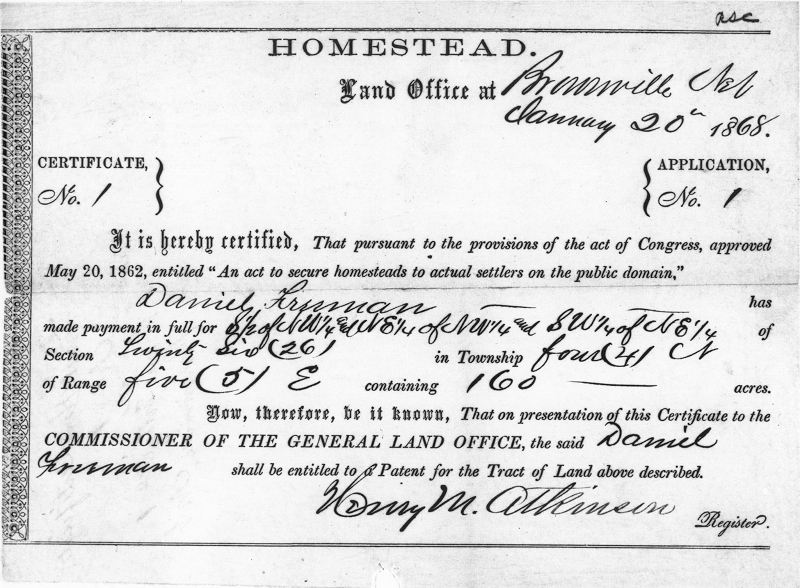 HOMESTEAD.
Land Office at Brownville Neb
January 20th 1868.
CERTIFICATE, APPLICATION,
No. 1 No. 1
It is hereby certified, That pursuant to the provisions of the act of Congress, approved
May 20, 1862, entitled "An act to secure homesteads to actual settlers on the public domain,"
Daniel Freeman has
made payment in full for of NW 1/4 and NE 1/4 of NW 1/4 and SW 1/4 of NE 1/4 of
Section Twenty Six (26) in Township four (4) N
of Range five (5) E containing 160 acres.
Now, therefore, be it known, That on presentation of this Certificate to the
COMMISSIONER OF THE GENERAL LAND OFFICE, the said Daniel
Freeman shall be entitled to a Patent for the Tract of Land above described.
Henry M. Atkinson
Register.